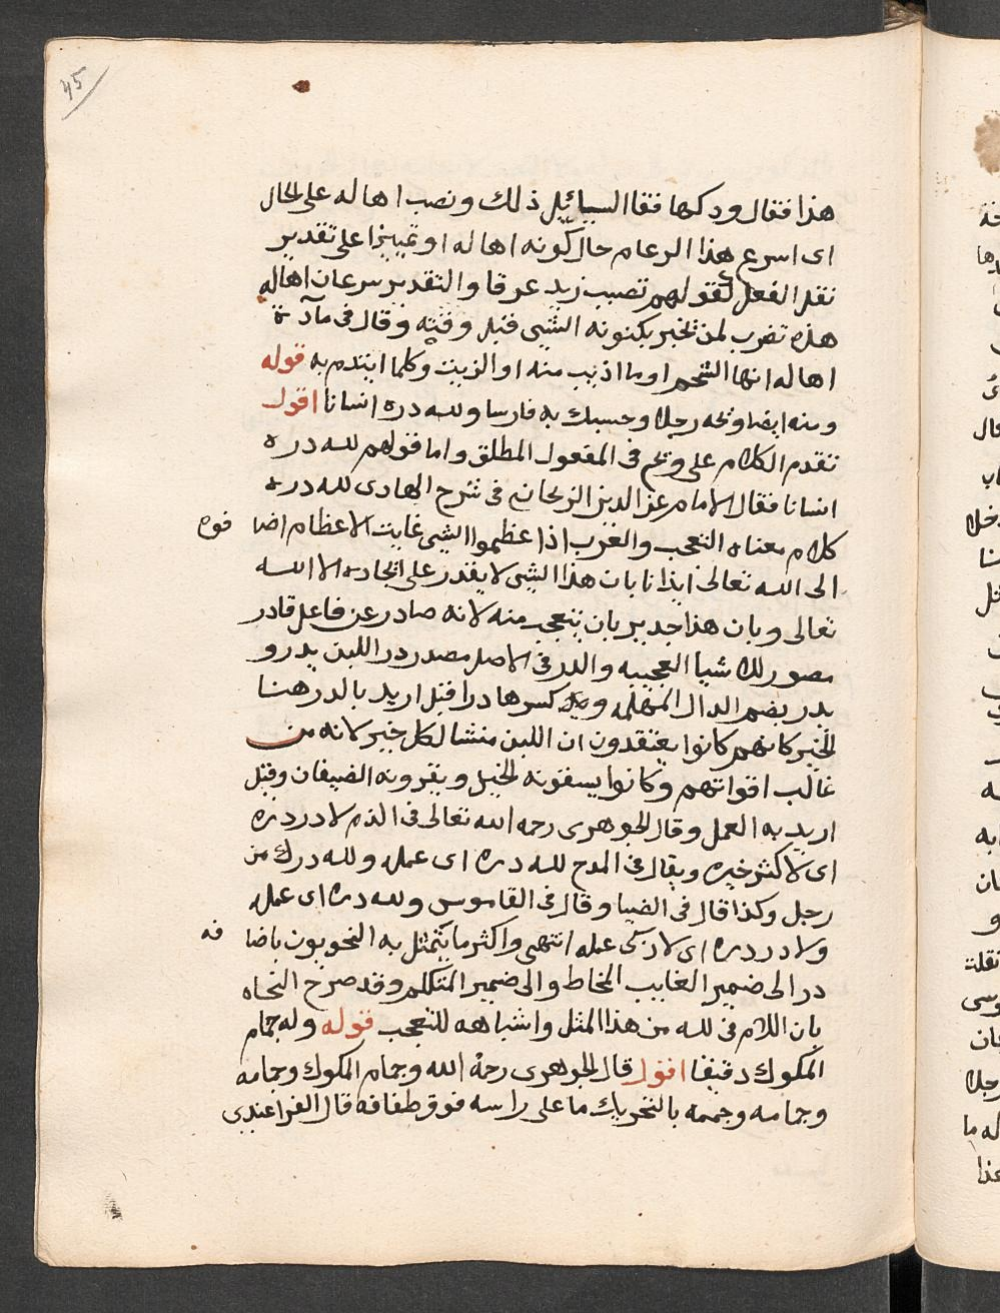 45
هذا فقال ودكها فقا السيايل ذلك ونصب اهاله على الحال
اى اسرع هذا الرعام حال كونه اهاله او تمييزا على تقدير
نقل الفعل كقولهم تصبب زيد عرقا والتقدير سرعان اهالة
هذه تضرب لمن يخبر بكينونه الشى قبل وقته وقال فى مآدة
اهاله انها الشحم او ما اذيب منه او الزيت وكلما ايتدم به قوله
ومنه ايضا ويحه رجلا وحسبك به فارسا ولله دره انسانا اقول
تقدم الكلام على ويح فى المفعول المطلق واما قولهم لله دره
انسانا فقال الامام عز الدين الزنجانى فى شرح الهادى لله دره
كلام معناه التعجب والعرب اذا عظموا الشى غايت الاعظام اضافوه
الى الله تعالى ايذانا بان هذا الشى لا يقدر على ايجاده الا الله
تعالى وبان هذا جدير بان يتعجب منه لانه صادر عن فاعل قادر
مصور للاشيا العجيبه والدر فى الاصل مصدر در اللبن يدر و
يدر بضم الدال المهمله و كسرها درا قيل اريد بالدر هنا
الخير كانهم كانوا يعتقدون ان اللبن منشا لكل خير لانه من
غالب اقواتهم وكانوا يسقونه الخيل ويقرونه الضيفان وقيل
اريد به العمل وقال الجوهرى رحمه الله تعالى فى الذم لا در دره
اى لا كثر خيره ويقال فى المدح لله دره اى عمله ولله درك من
رجل وكذا قال فى الضيا وقال فى القاموس ولله دره اى عمله
ولا در دره اى لا زكى عمله انتهى واكثر ما يتمثل به النحويون باضافه
در الى ضمير الغايب المخاط والى ضمير المتكلم وقد صرح النحاه
بان اللام فى لله من هذا المثل واشباهه للتعجب قوله وله جمام
المكوك دقيقا اقول قال الجوهرى رحمة الله وجمام المكوك وجمامه
وجمامه وجممه بالتحريك ما على راسه فوق طفافه قال الفرا عندى